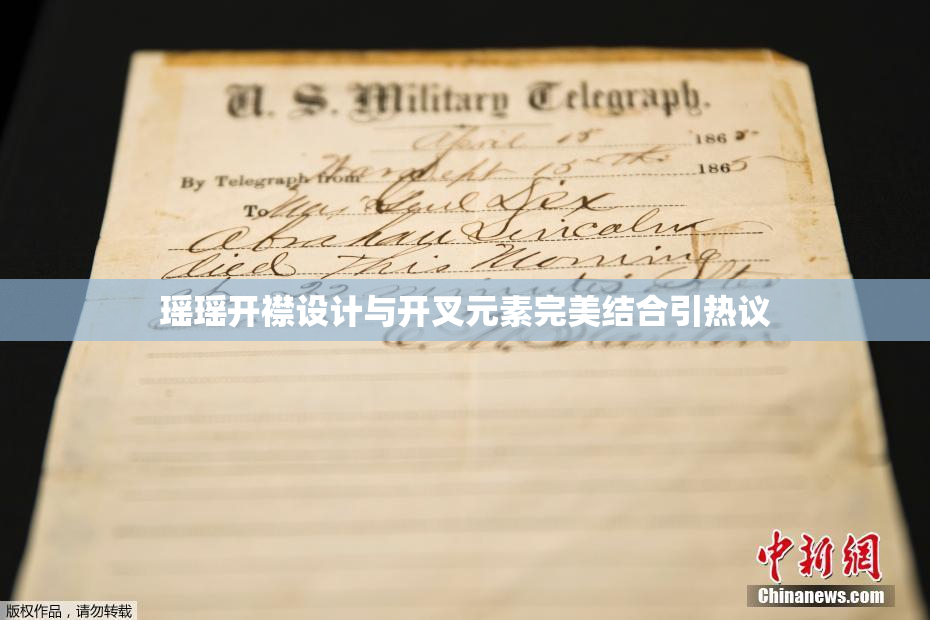 U. S. Military Telegraph.
April 15 1865
By Telegraph from War Dept 15th 1865
To Maj Genl Dix
Abraham Lincoln
died This Morning
at 22 minutes after
瑶瑶开襟设计与开叉元素完美结合引热议
E. M. Stanton
中新网
Chinanews.com
版权作品，请勿转载